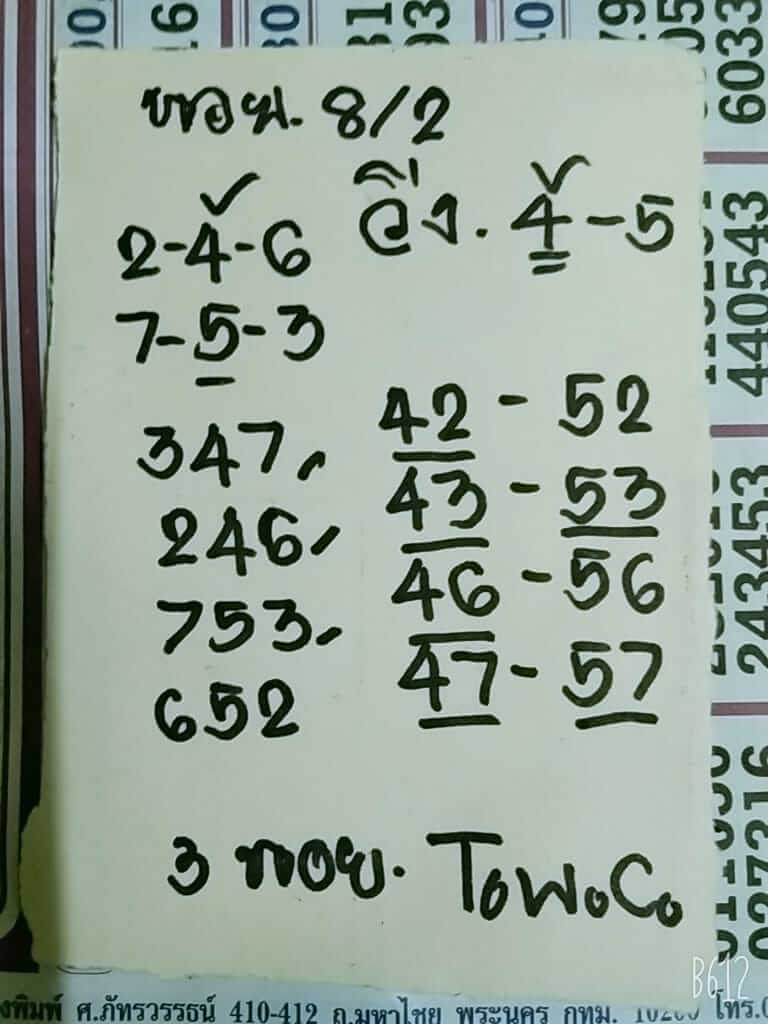 นอย. 8/2
2-4-6
วิ่ง. 4-5
7-5-3
347,
246,
753,
652
42 - 52
43 - 53
46 - 56
47 - 57
3 นอย. ToWoCo
6033
440543
243453
027316
ศ.ภัทรวรรธน์ 410-412 ถ.มหาไชย พระนคร กทม. 10200 โทร.
B612